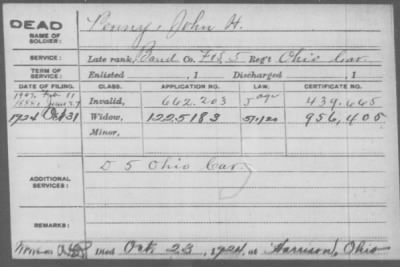 DEAD
NAME OF SOLDIER: Penny, John H.
SERVICE: Late rank, Band Co. F&S 5 Reg't Ohio Cav.
TERM OF SERVICE: Enlisted , 1 Discharged , 1
DATE OF FILING. CLASS. APPLICATION NO. LAW. CERTIFICATE NO.
Invalid, 662.203 age 439.665
1924 Oct 31 Widow, 1225183 956,405
Minor,
ADDITIONAL SERVICES: D 5 Ohio Cav
REMARKS:
Died Oct. 23, 1924, at Harrison, Ohio